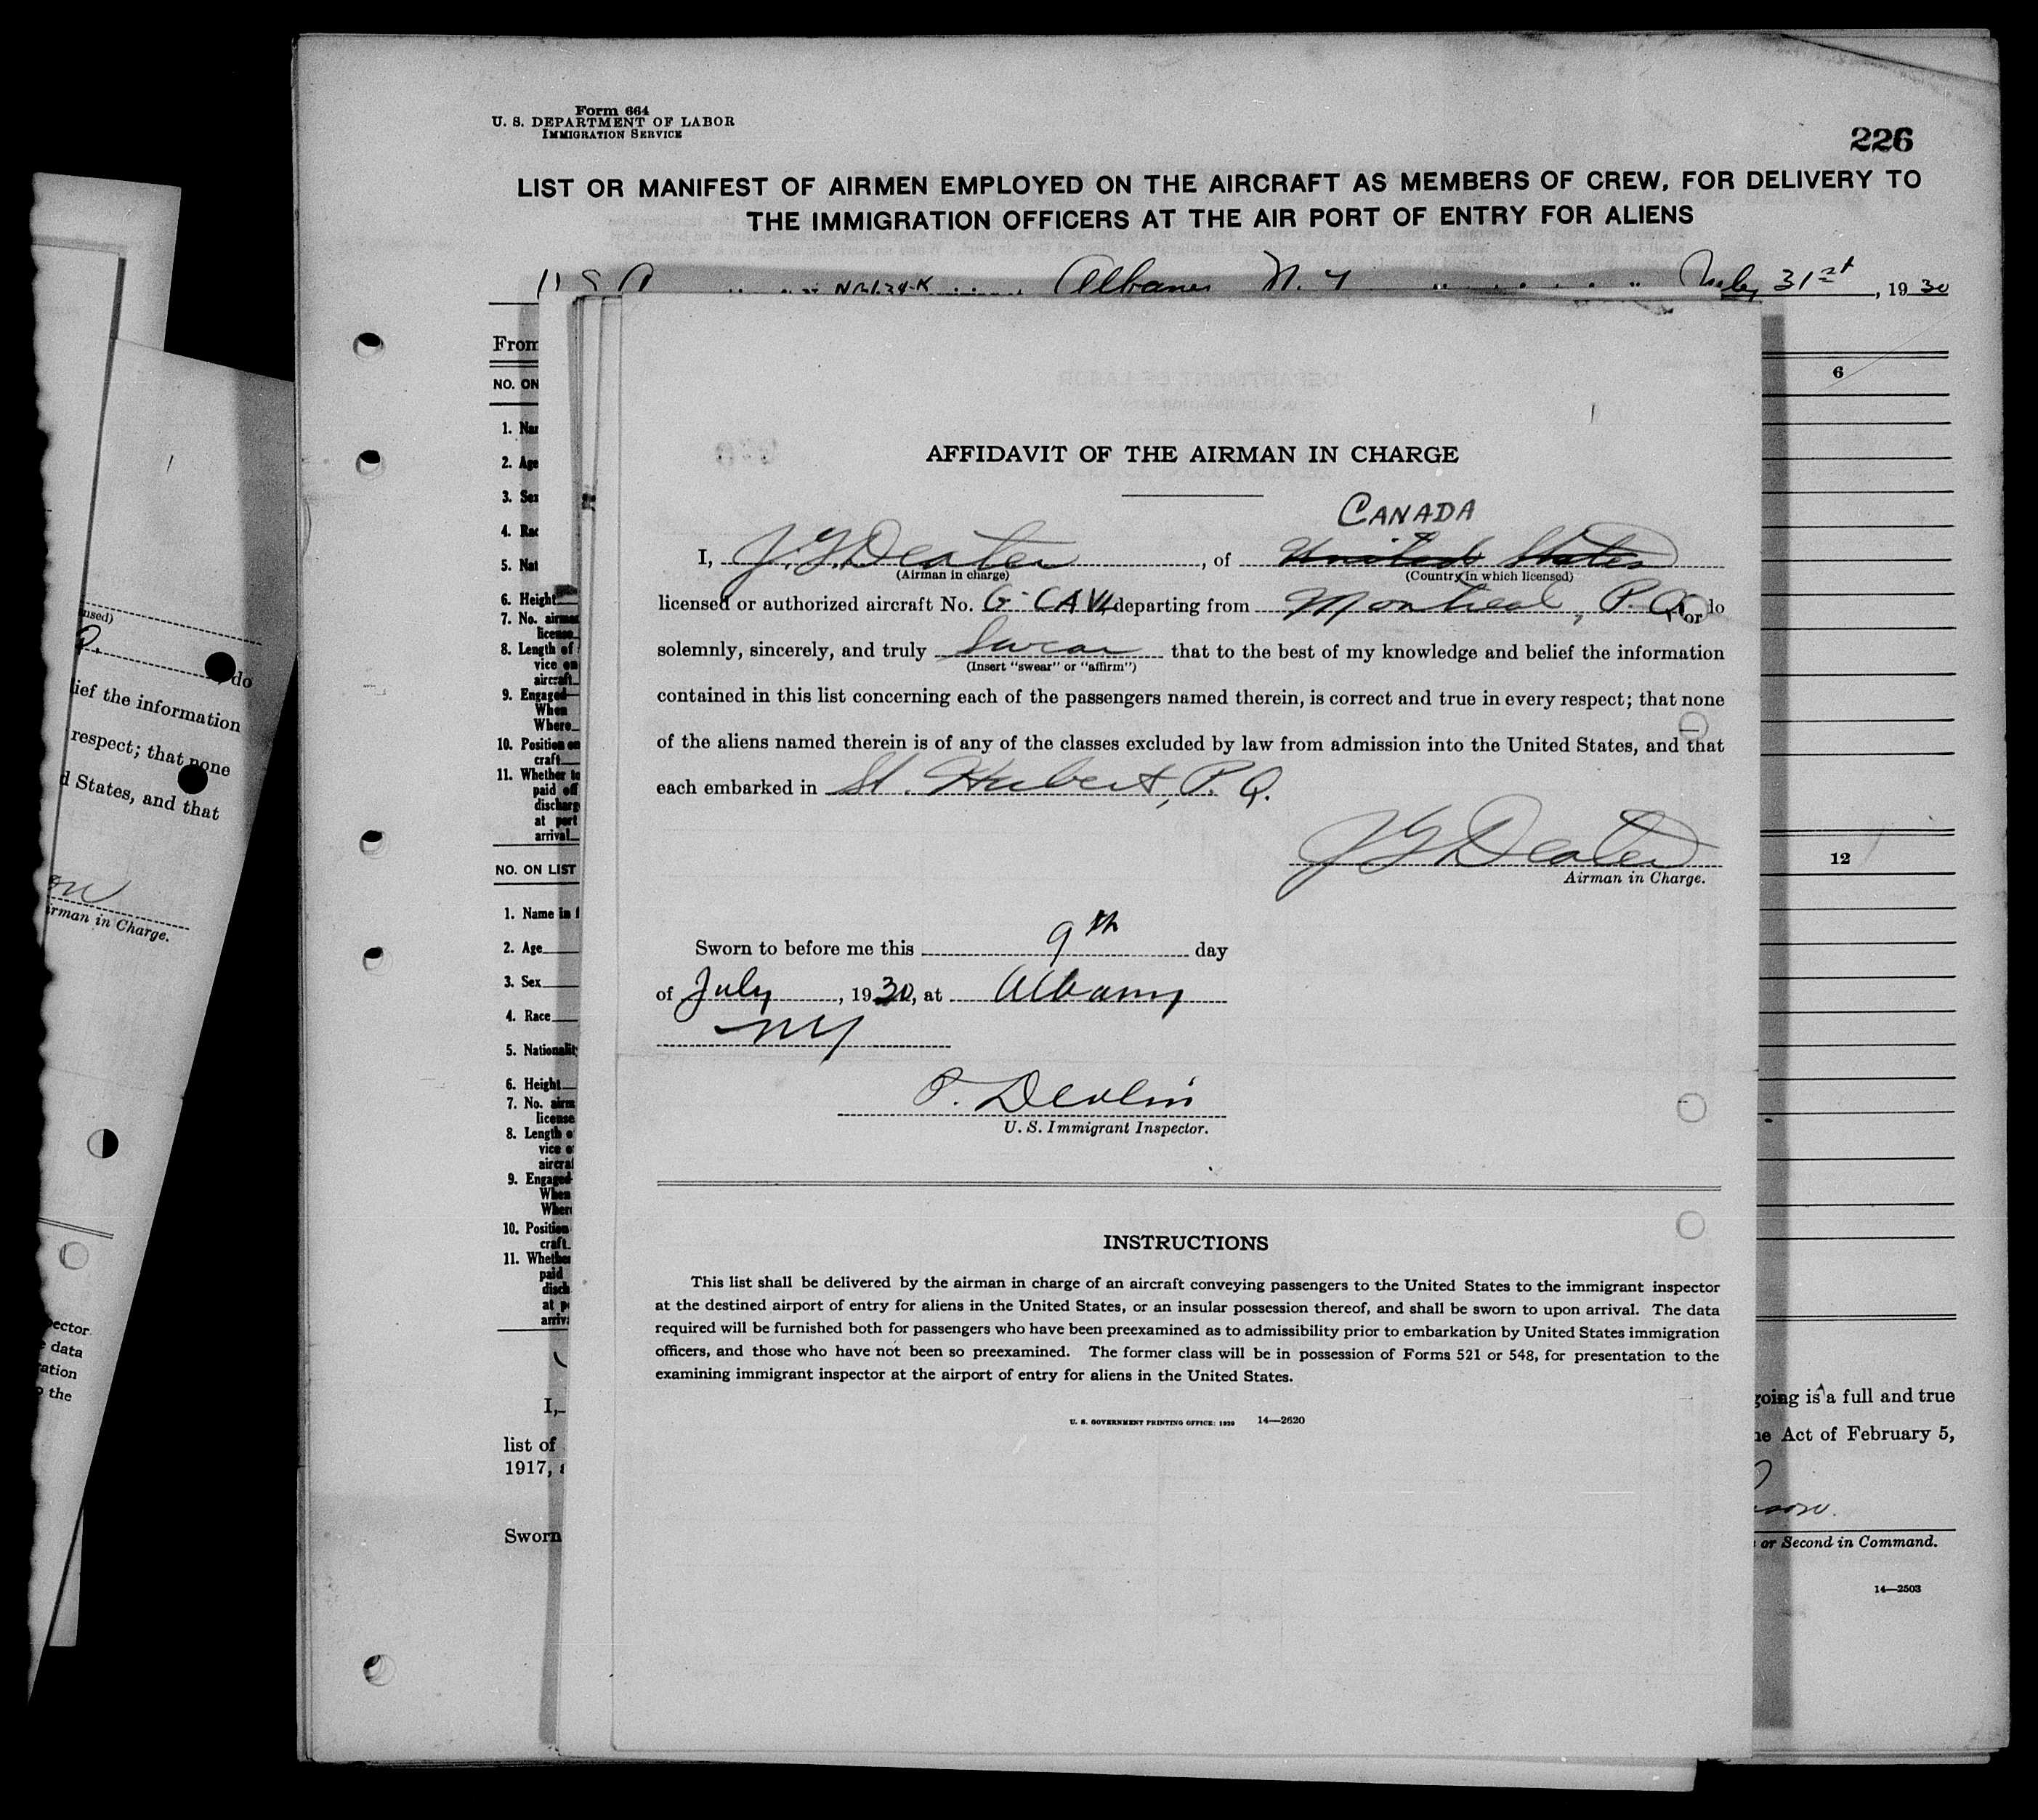 Form 664
U. S. DEPARTMENT OF LABOR
IMMIGRATION SERVICE
226
LIST OR MANIFEST OF AIRMEN EMPLOYED ON THE AIRCRAFT AS MEMBERS OF CREW, FOR DELIVERY TO
THE IMMIGRATION OFFICERS AT THE AIR PORT OF ENTRY FOR ALIENS
Albany N. Y July 31st, 1930
From
NO. ON
6
1. Nam
2. Age
3. Sex
4. Rac
5. Nat
6. Height
7. No. airman
license
8. Length of
vice on
aircraft
9. Engaged
When
Where
10. Position on
craft
11. Whether to
paid off
discharg
at port
arrival
NO. ON LIST
12
1. Name in f
2. Age
3. Sex
4. Race
5. Nationalit
6. Height
7. No. airm
license
8. Length o
vice o
aircraf
9. Engaged
When
Wher
10. Position
craft
11. Whether
paid
disch
at p
arriv
I,
list of
1917,
Sworn
going is a full and true
he Act of February 5,
or Second in Command.
14—2503
AFFIDAVIT OF THE AIRMAN IN CHARGE
CANADA
I, J. G. Deater, of United States
(Airman in charge) (Country in which licensed)
licensed or authorized aircraft No. G-CAVL departing from Montreal, P. Q. or do
solemnly, sincerely, and truly swear that to the best of my knowledge and belief the information
(Insert "swear" or "affirm")
contained in this list concerning each of the passengers named therein, is correct and true in every respect; that none
of the aliens named therein is of any of the classes excluded by law from admission into the United States, and that
each embarked in St. Hubert, P. Q.
J G Deater
Airman in Charge.
Sworn to before me this 9th day
of July, 1930, at Albany
NY
P. Devlin
U. S. Immigrant Inspector.
INSTRUCTIONS
This list shall be delivered by the airman in charge of an aircraft conveying passengers to the United States to the immigrant inspector
at the destined airport of entry for aliens in the United States, or an insular possession thereof, and shall be sworn to upon arrival. The data
required will be furnished both for passengers who have been preexamined as to admissibility prior to embarkation by United States immigration
officers, and those who have not been so preexamined. The former class will be in possession of Forms 521 or 548, for presentation to the
examining immigrant inspector at the airport of entry for aliens in the United States.
U. S. GOVERNMENT PRINTING OFFICE: 1929 14—2620
nsed)
, do
lief the information
respect; that none
d States, and that
irman in Charge.
pector
data
ration
the